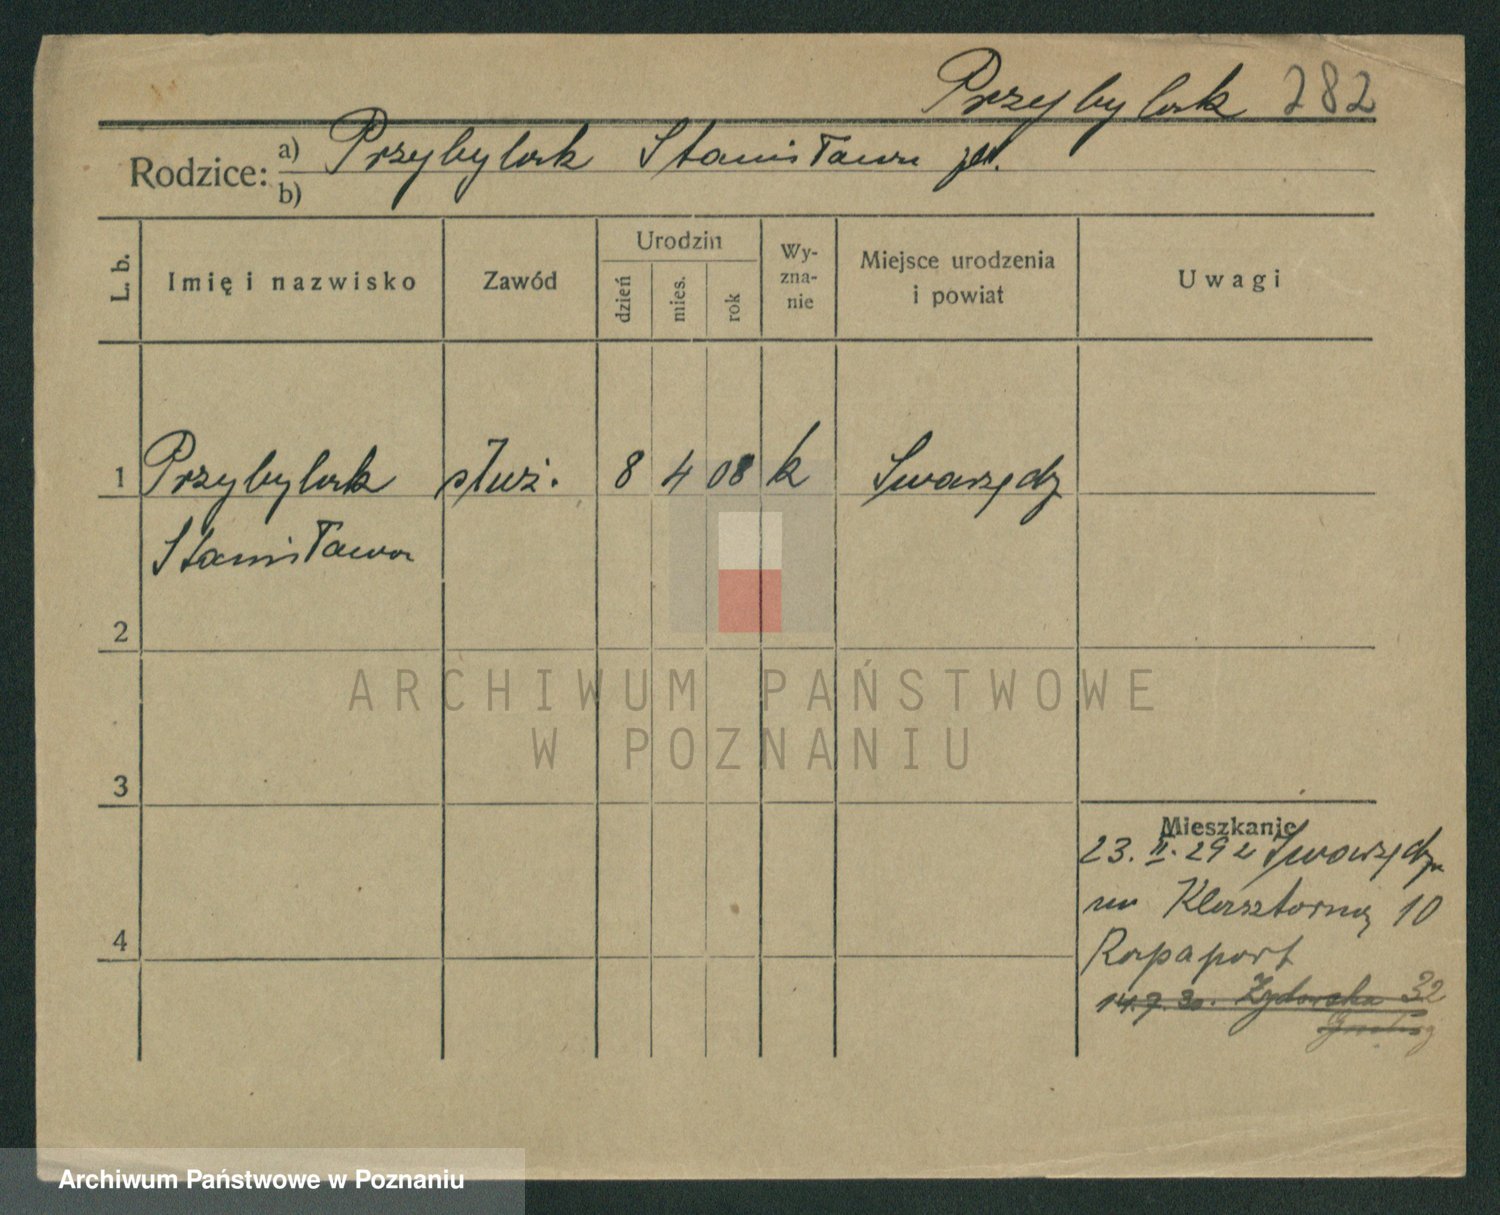 Przybylak 282
Rodzice: a) Przybylak Stanisława
b)
L. b. Imię i nazwisko Zawód Urodzin dzień mies. rok Wy-zna-nie Miejsce urodzenia i powiat Uwagi
1 Przybylak służ. 8 4 08 k Swarzędz
Stanisława
2
3
4
Mieszkanie
23. II. 29 z Swarzędza
na Klasztorną 10
Rapaport
14.7.30. Żydowska 32
ARCHIWUM PAŃSTWOWE
W POZNANIU
Archiwum Państwowe w Poznaniu